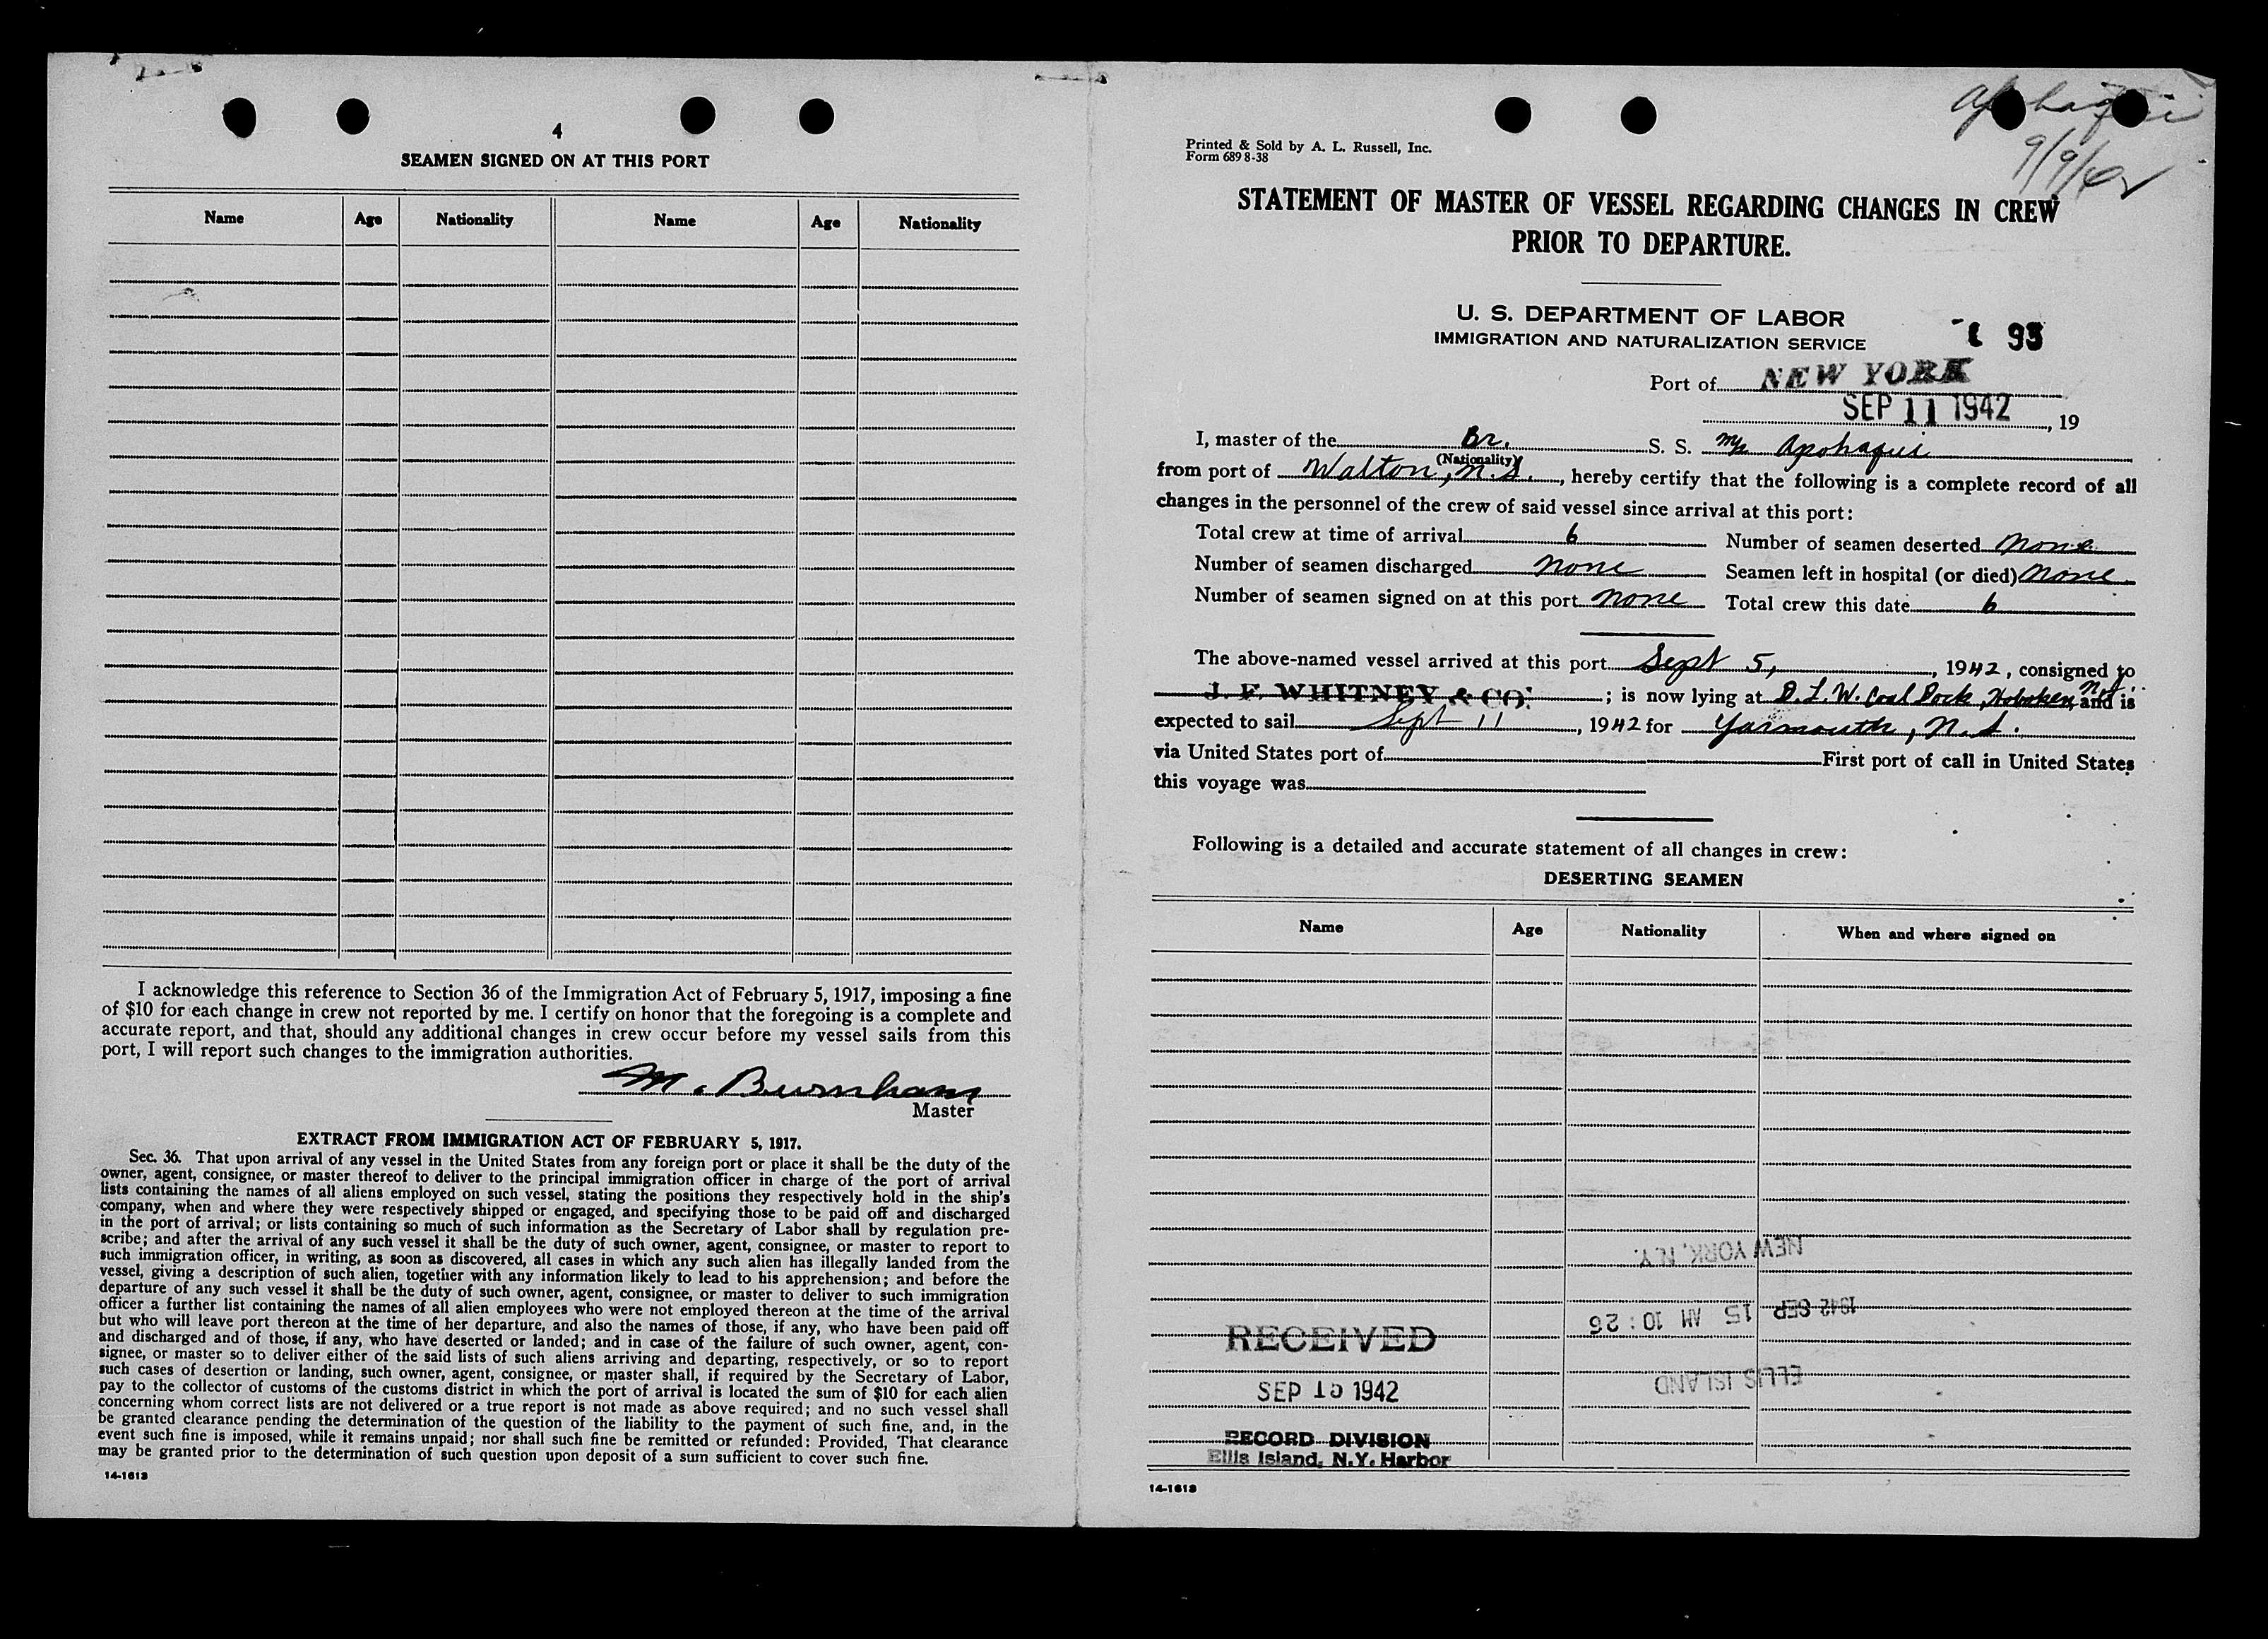 4
SEAMEN SIGNED ON AT THIS PORT
Name Age Nationality Name Age Nationality
I acknowledge this reference to Section 36 of the Immigration Act of February 5, 1917, imposing a fine
of $10 for each change in crew not reported by me. I certify on honor that the foregoing is a complete and
accurate report, and that, should any additional changes in crew occur before my vessel sails from this
port, I will report such changes to the immigration authorities.
M. Burnham
Master
EXTRACT FROM IMMIGRATION ACT OF FEBRUARY 5, 1917.
Sec. 36. That upon arrival of any vessel in the United States from any foreign port or place it shall be the duty of the
owner, agent, consignee, or master thereof to deliver to the principal immigration officer in charge of the port of arrival
lists containing the names of all aliens employed on such vessel, stating the positions they respectively hold in the ship's
company, when and where they were respectively shipped or engaged, and specifying those to be paid off and discharged
in the port of arrival; or lists containing so much of such information as the Secretary of Labor shall by regulation pre-
scribe; and after the arrival of any such vessel it shall be the duty of such owner, agent, consignee, or master to report to
such immigration officer, in writing, as soon as discovered, all cases in which any such alien has illegally landed from the
vessel, giving a description of such alien, together with any information likely to lead to his apprehension; and before the
departure of any such vessel it shall be the duty of such owner, agent, consignee, or master to deliver to such immigration
officer a further list containing the names of all alien employees who were not employed thereon at the time of the arrival
but who will leave port thereon at the time of her departure, and also the names of those, if any, who have been paid off
and discharged and of those, if any, who have deserted or landed; and in case of the failure of such owner, agent, con-
signee, or master so to deliver either of the said lists of such aliens arriving and departing, respectively, or so to report
such cases of desertion or landing, such owner, agent, consignee, or master shall, if required by the Secretary of Labor,
pay to the collector of customs of the customs district in which the port of arrival is located the sum of $10 for each alien
concerning whom correct lists are not delivered or a true report is not made as above required; and no such vessel shall
be granted clearance pending the determination of the question of the liability to the payment of such fine, and, in the
event such fine is imposed, while it remains unpaid; nor shall such fine be remitted or refunded: Provided, That clearance
may be granted prior to the determination of such question upon deposit of a sum sufficient to cover such fine.
14-1613
Apohaqui
9/9/42
Printed & Sold by A. L. Russell, Inc.
Form 689 8-38
STATEMENT OF MASTER OF VESSEL REGARDING CHANGES IN CREW
PRIOR TO DEPARTURE.
U. S. DEPARTMENT OF LABOR
IMMIGRATION AND NATURALIZATION SERVICE
93
Port of NEW YORK
SEP 11 1942, 19
I, master of the Br. S. S. M/s Apohaqui
(Nationality)
from port of Walton, N.S., hereby certify that the following is a complete record of all
changes in the personnel of the crew of said vessel since arrival at this port:
Total crew at time of arrival 6 Number of seamen deserted None
Number of seamen discharged None Seamen left in hospital (or died) None.
Number of seamen signed on at this port None Total crew this date 6
The above-named vessel arrived at this port Sept 5, 1942, consigned to
J. F. WHITNEY & CO. ; is now lying at D. L. W. Coal Dock, Hoboken, N.J. and is
expected to sail Sept 11, 1942 for Yarmouth, N.S.
via United States port of First port of call in United States
this voyage was
Following is a detailed and accurate statement of all changes in crew:
DESERTING SEAMEN
Name Age Nationality When and where signed on
NEW YORK, N.Y.
1942 SEP 15 AM 10:26
ELLIS ISLAND
RECEIVED
SEP 15 1942
RECORD DIVISION
Ellis Island, N.Y. Harbor
14-1613